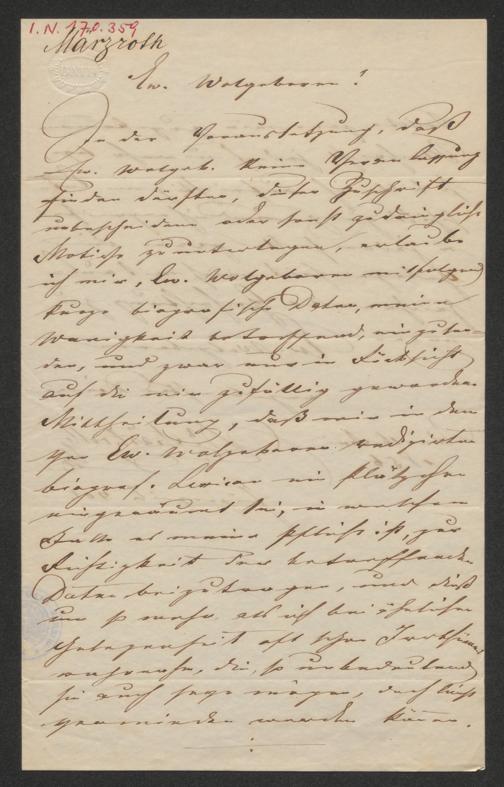 I. N. 170.359
Marzroth
Ew. Wolgeboren!
In der Voraussetzung, daß
Ew. Wolgeb. keine Veranlassung
finden dürften, dieser Zuschrift
unbescheidene oder sonst zudringliche
Motive zu unterlegen, erlaube
ich mir, Ew. Wolgeboren mitfolgend
kurze biografische Daten, meine
Wenigkeit betreffend, einzusen-
den, und zwar nur in Rücksicht
auf die mir zufällig gewordene
Mittheilung, daß mir in dem
von Ew. Wolgeboren redigirten
biograf. Lexicon ein Plätzchen
eingeräumt sei, in welchem
Falle es meine Pflicht ist, zur
Richtigkeit der betreffenden
Daten beizutragen, und dieß
um so mehr, als ich bei ähnlicher
Gelegenheit oft schon Irrthümer
wahrnahm, die, so unbedeutend
sie auch sein mögen, doch leicht
vermieden werden können.